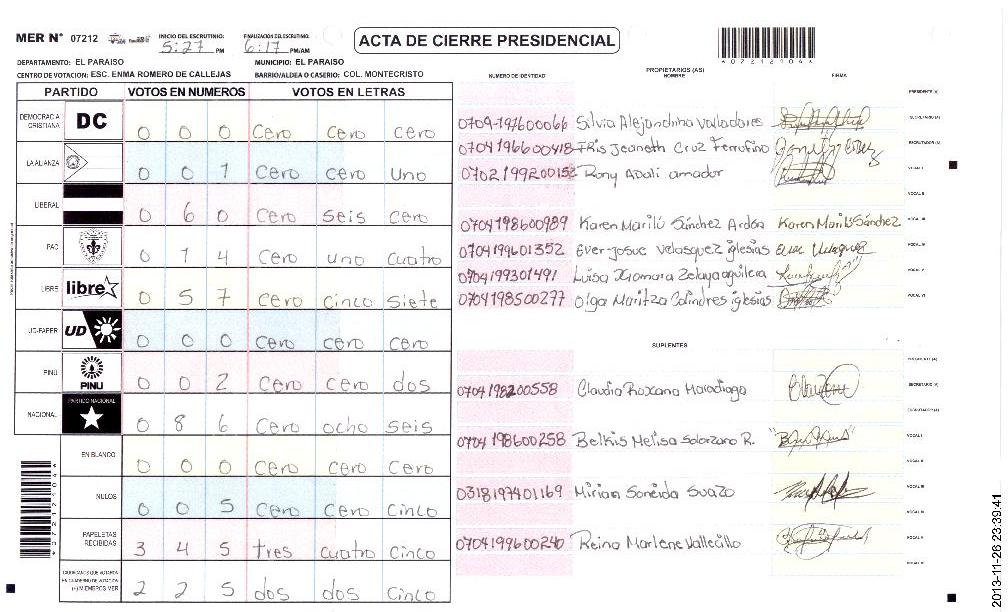 MER N° 07212 INICIO DEL ESCRUTINIO: 5:27 PM FINALIZACION DEL ESCRUTINIO: 6:17 PM/AM
ACTA DE CIERRE PRESIDENCIAL
*072129044*
DEPARTAMENTO: EL PARAISO MUNICIPIO: EL PARAISO
CENTRO DE VOTACION: ESC. ENMA ROMERO DE CALLEJAS BARRIO/ALDEA O CASERIO: COL. MONTECRISTO
PARTIDO VOTOS EN NUMEROS VOTOS EN LETRAS
DEMOCRACIA CRISTIANA DC 0 0 0 Cero Cero cero
LA ALIANZA 0 0 1 Cero Cero uno
LIBERAL 0 6 0 Cero Seis Cero
PAC 0 1 4 Cero uno cuatro
LIBRE libre 0 5 7 Cero Cinco Siete
UD-FAPER UD 0 0 0 Cero Cero Cero
PINU PINU 0 0 2 Cero Cero dos
NACIONAL PARTIDO NACIONAL 0 8 6 Cero ocho seis
EN BLANCO 0 0 0 Cero Cero Cero
NULOS 0 0 5 Cero Cero Cinco
PAPELETAS RECIBIDAS 3 4 5 tres cuatro Cinco
CIUDADANOS QUE VOTARON EN CUADERNO DE VOTACION (+) MIEMBROS MER 2 2 5 dos dos Cinco
NUMERO DE IDENTIDAD PROPIETARIOS (AS) NOMBRE FIRMA
PRESIDENTE(A)
0704-197600066 Silvia Alejandrina Valladares SECRETARIO(A)
0704196600418 Iris Jeaneth Cruz Ferrufino ESCRUTADOR (A)
0702199200152 Rony Adali amador VOCAL I
VOCAL II
0704198600989 Karen Marilú Sánchez Ardón Karen Marilú Sánchez VOCAL III
0704199601352 Ever Josue Velasquez iglesias VOCAL IV
0704199301491 Luisa Xiomara Zelaya aguilera VOCAL V
0704198500277 Olga Maritza Colindres iglesias VOCAL VI
SUPLENTES
PRESIDENTE (A)
0704198200558 Claudia Roxana Maradiaga SECRETARIO (A)
ESCRUTADOR (A)
0704198600258 Belkis Melisa Solorzano R. VOCAL I
VOCAL II
0318197401169 Mirian Soneida Suazo VOCAL III
VOCAL IV
0704199600240 Reina Marlene Vallecillo VOCAL V
2013-11-26 23:39:41